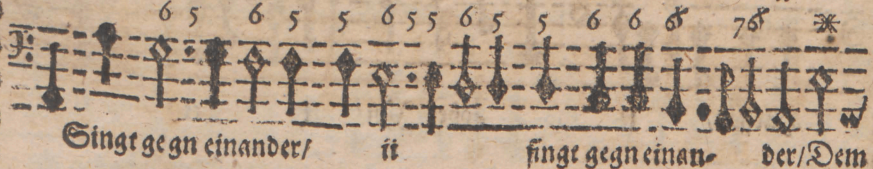 6 5 6 5 5 6 5 5 6 5 5 6 6 6 7 6
Singt gegn einander/ ij singt gegn einan- der/ Dem